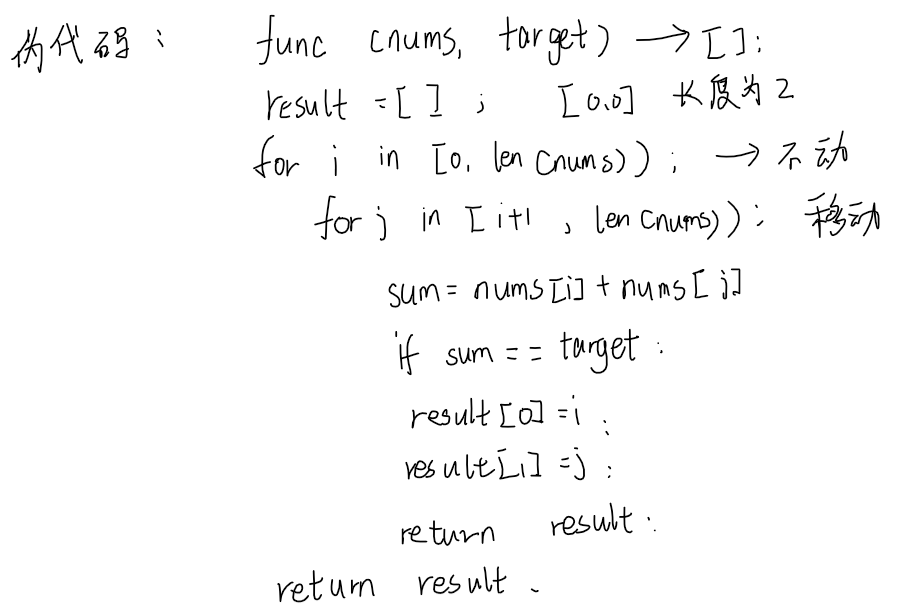 伪代码： func (nums, target) → []:
result = [ ] ; [0,0] 长度为2
for i in [0, len(nums)) ; → 不动
for j in [i+1 , len(nums)) : 移动
sum = nums[i] + nums[j]
if sum == target :
result[0] = i :
result[1] = j :
return result :
return result .